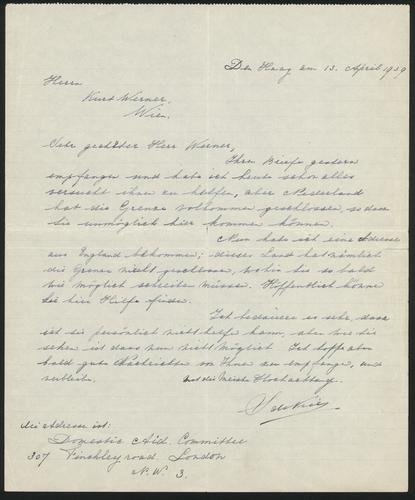 Den Haag am 13. April 1939
Herrn
Kurt Werner,
Wien.
Sehr geehrter Herr Werner,
Ihren Briefe gestern
empfangen und habe ich heute schon alles
versucht ihnen zu helfen, aber Niederland
hat die Grenze vollkommen geschlossen, so dass
Sie unmöglich hier kommen können.
Nun habe ich eine Adresse
aus England bekommen; dieses Land hat nämlich
die Grenze nicht geschlossen, wohin Sie so bald
wie möglich schreiben müssen. Hoffentlich können
Sie hier Hilfe finden.
Ich bedauere es sehr, dass
ich Sie persönlich nicht helfe kann, aber wie Sie
sehen ist dass nun nicht möglich. Ich hoffe also
bald gute Nachrichte von Ihnen zu empfange, und
verbleibe, mit die Meiste Hochachtung.
Die Adresse ist:
Domestic Aid. Committee
307 Finchley road. London
N.W. 3.